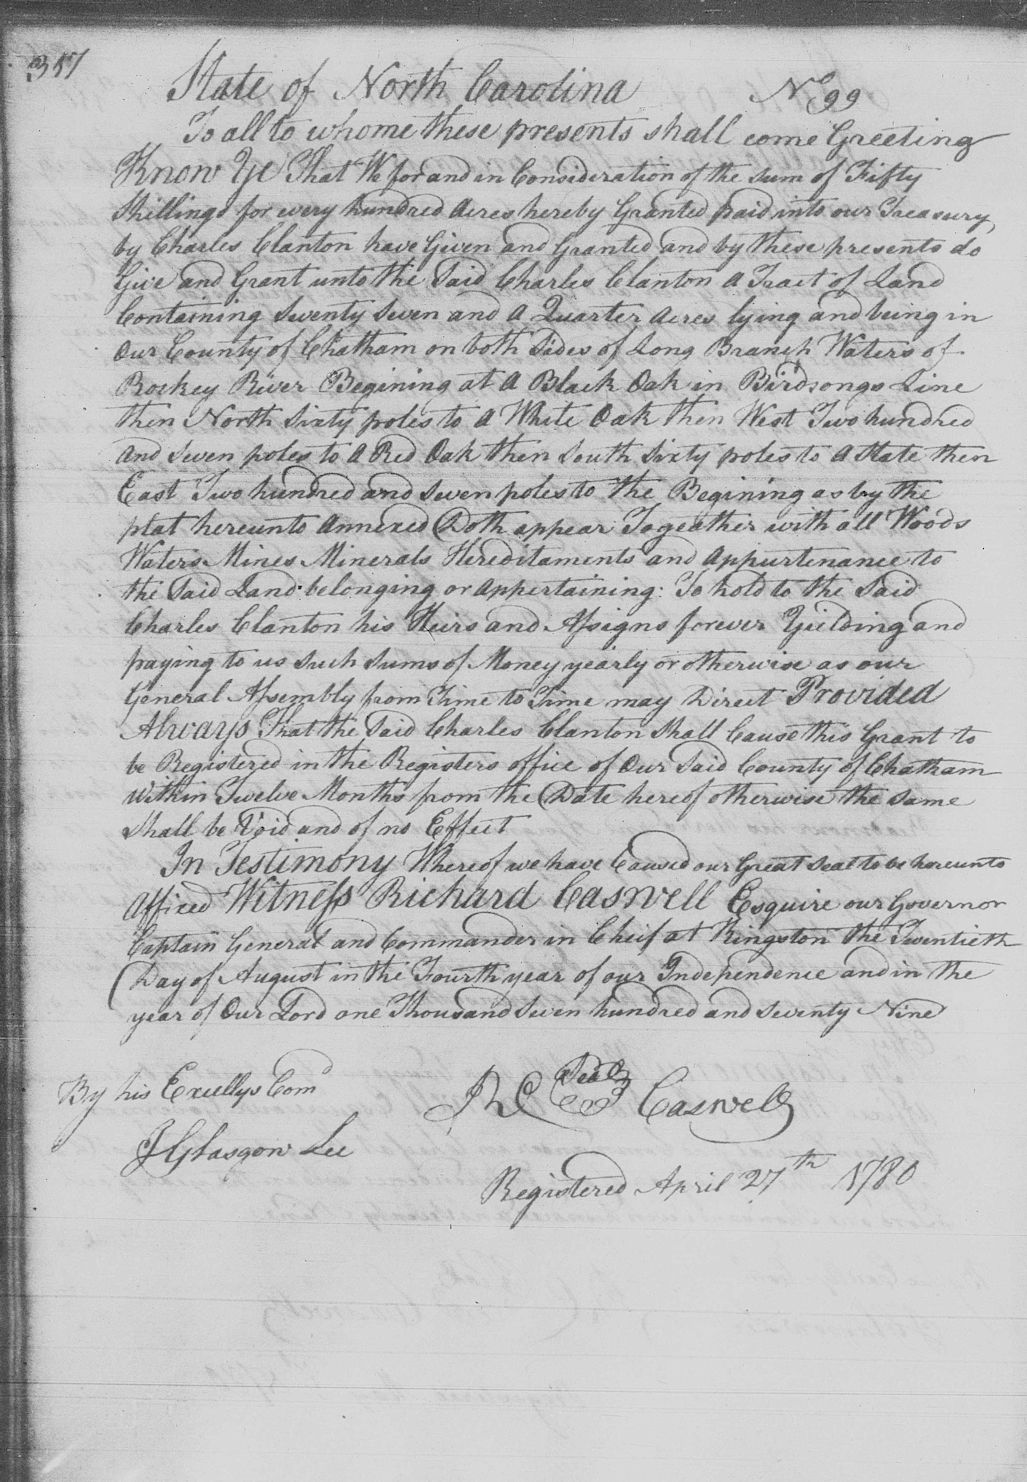 317
State of North Carolina No 99
To all to whome these presents shall come Greeting
Know Ye That We for and in Consideration of the sum of Fifty
Shillings for every hundred Acres hereby Granted paid into our Treasury,
by Charles Clanton have Given and Granted and by these presents do
Give and Grant unto the Said Charles Clanton A Tract of Land
Containing Seventy Seven and A Quarter Acres lying and being in
Our County of Chatham on both Sides of Long Branch Waters of
Rockey River Begining at A Black Oak in Birdsongs Line
then North Sixty poles to A White Oak then West Two hundred
and Seven poles to A Red Oak then South Sixty poles to A Stake then
East Two hundred and Seven poles to the Begining as by the
plat hereunto Annexed Doth appear Togeather with all Woods
Waters Mines Minerals Hereditaments and Appurtenance to
the Said Land belonging or Appertaining: To hold to the Said
Charles Clanton his Heirs and Assigns forever Yeilding and
paying to us Such Sums of Money yearly or otherwise as our
General Assembly from Time to Time may Direct Provided
Always That the Said Charles Clanton Shall Cause this Grant to
be Registered in the Registers office of Our Said County of Chatham
Within Twelve Months from the Date hereof otherwise the Same
Shall be Void and of no Effect
In Testimony Whereof we have Caused our Great Seal to be hereunto
Afficed Witness Richard Caswell Esquire our Governor
Captain General and Commander in Cheif at Kingston the Twentieth
Day of August in the Fourth year of our Independence and in the
year of Our Lord one Thousand Seven hundred and Seventy Nine
By his Excellys Comd Rd Seal Caswell
J Glasgow Sec
Registered April 27th 1780